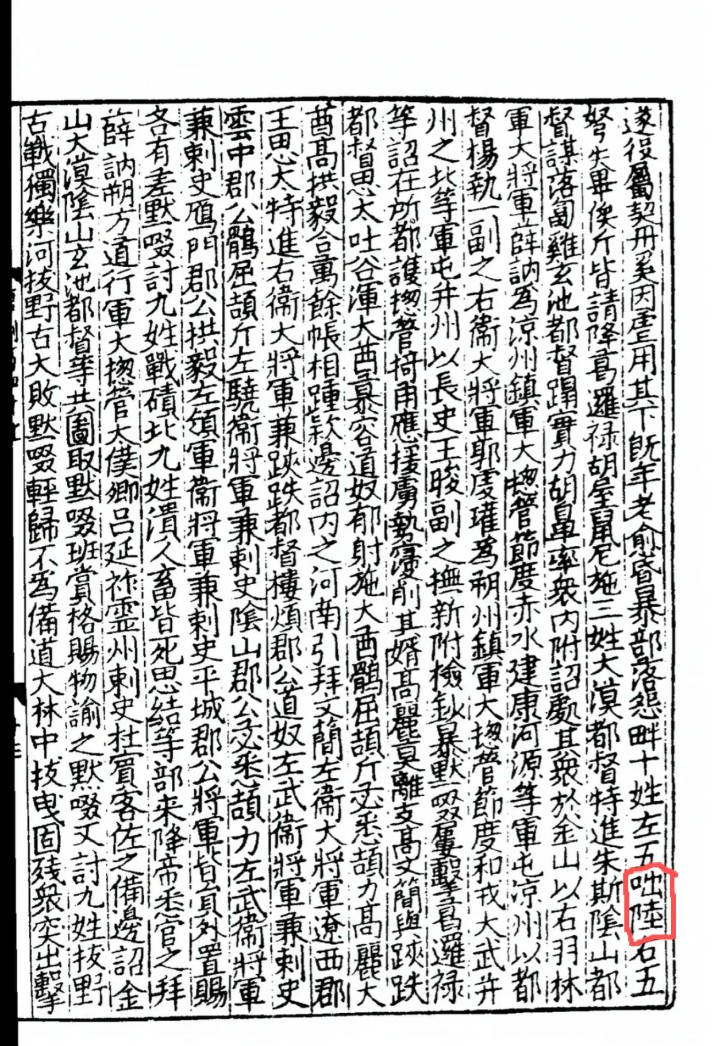 遂役屬契丹奚因虐用其下旣年老愈昏暴部落怨畔十姓左五咄陸右五
弩失畢俟斤皆請降葛邏祿胡屋鼠尼施三姓大漠都督特進朱斯陰山都
督謀落匐雞玄池都督蹋實力胡鼻率衆内附詔處其衆於金山以右羽林
軍大將軍薛訥爲凉州鎮軍大揔管節度赤水建康河源等軍屯凉州以都
督楊執一副之右衞大將軍郭虔瓘爲朔州鎮軍大揔管節度和戎大武并
州之北等軍屯并州以長史王晙副之撫新附檢鈔暴默啜屢擊葛邏祿
等詔在所都護揔管掎角應援虜勢寖削其婿高麗莫離支高文簡與𨁂跌
都督思太吐谷渾大酋慕容道奴郁射施大酋鶻屈頡斤苾悉頡力高麗大
酋高拱毅合萬餘帳相踵款邊詔内之河南引拜文簡左衞大將軍遼西郡
王思太特進右衞大將軍兼𨁂跌都督樓煩郡公道奴左武衞將軍兼刺史
雲中郡公鶻屈頡斤左驍衞將軍兼刺史陰山郡公苾悉頡力左武衞將軍
兼刺史鴈門郡公拱毅左領軍衞將軍兼刺史平城郡公將軍皆員外置賜
各有差默啜討九姓戰磧北九姓潰人畜皆死思結等部来降帝悉官之拜
薛訥朔方道行軍大揔管太僕卿吕延祚靈州刺史杜賓客佐之備邊詔金
山大漠陰山玄池都督等共圖取默啜班賞格賜物諭之默啜又討九姓拔野
古戰獨樂河拔野古大敗默啜輕歸不爲備道大林中拔曳固殘衆突出擊